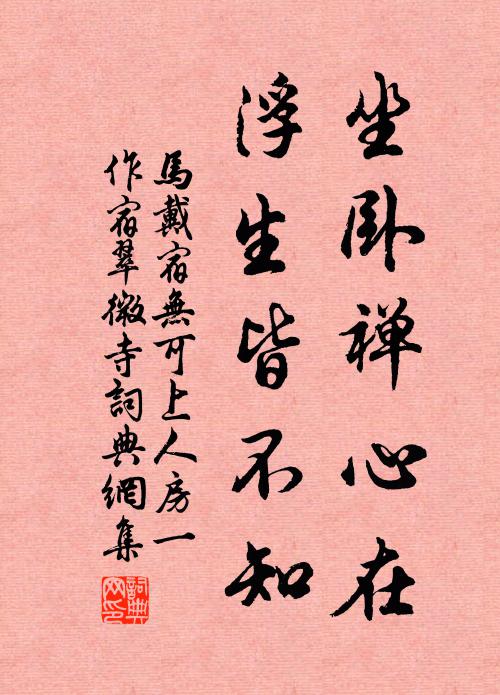 坐卧禅心在
浮生皆不知
馬戴宿無可上人房一
作宿翠微寺詞典網集
詞典网印